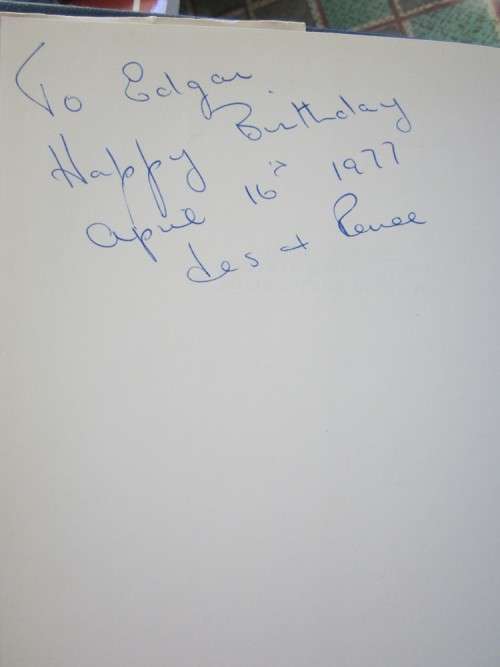 To Edgar
Happy Birthday
April 16th 1977
des + Renee